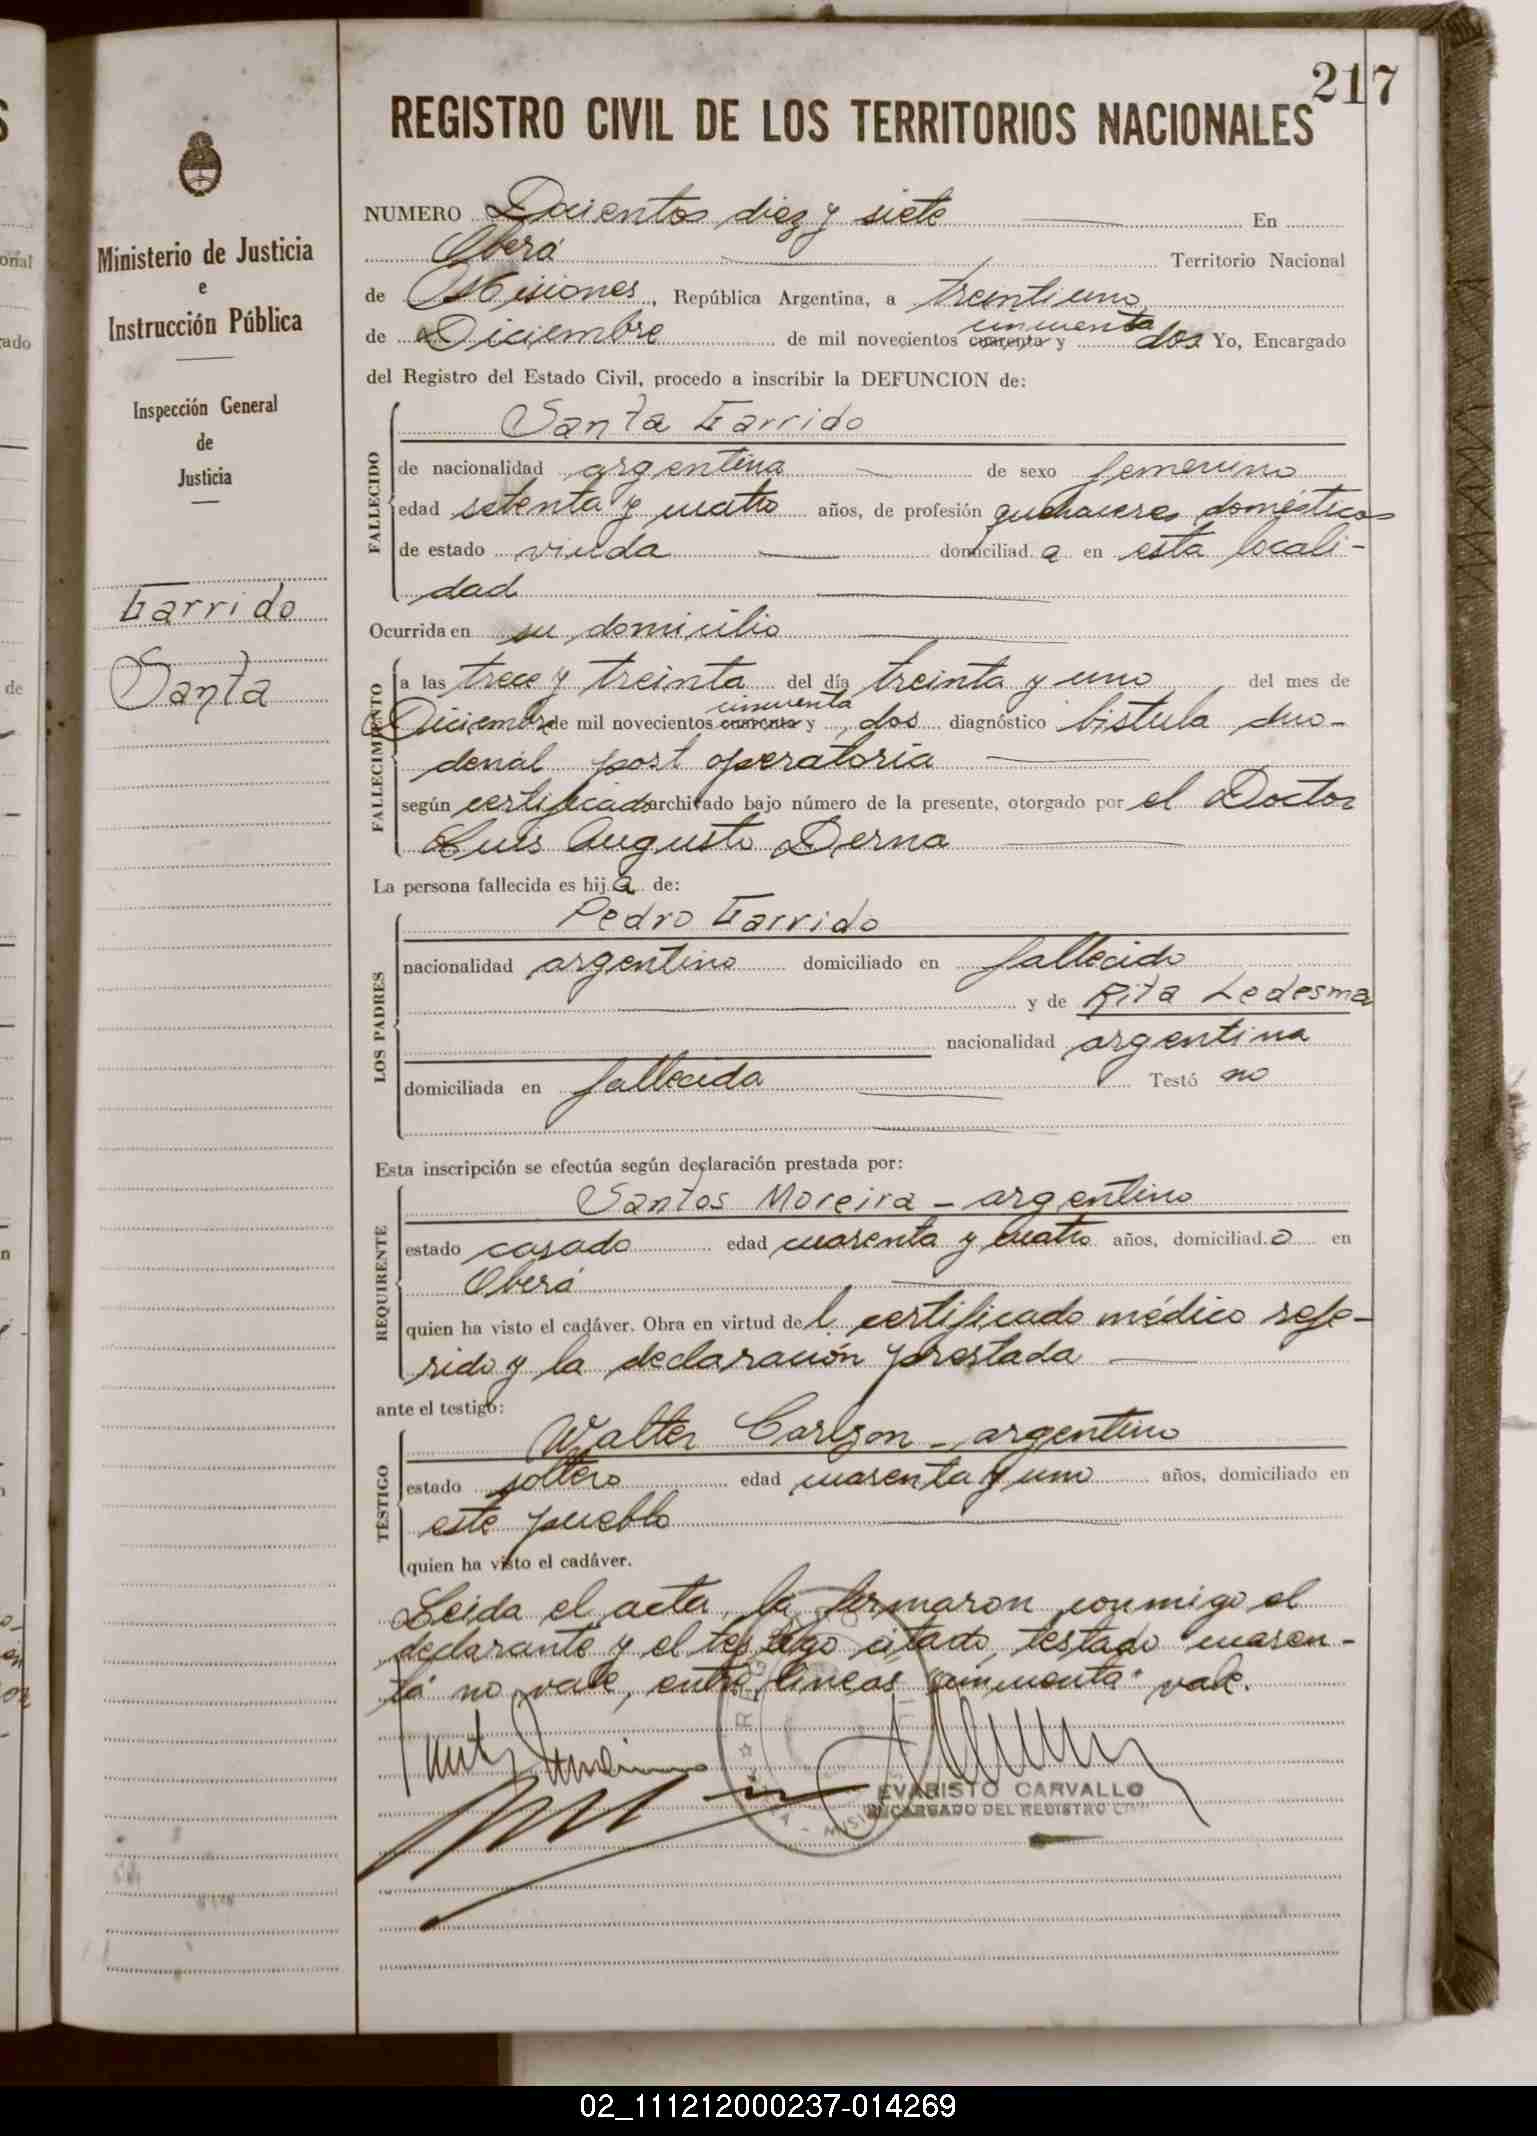 217
REGISTRO CIVIL DE LOS TERRITORIOS NACIONALES
Ministerio de Justicia
e
Instrucción Pública
Inspección General
de
Justicia
Garrido
Santa
NUMERO Docientos diez y siete En
Oberá Territorio Nacional
de Misiones, República Argentina, a treintiuno
de Diciembre de mil novecientos cuarenta cincuenta y dos Yo, Encargado
del Registro del Estado Civil, procedo a inscribir la DEFUNCION de:
FALLECIDO
Santa Garrido
de nacionalidad argentina de sexo femenino
edad setenta y cuatro años, de profesión quehaceres domésticos
de estado viuda domiciliad a en esta locali-
dad
Ocurrida en su domicilio
FALLECIMIENTO
a las trece y treinta del día treinta y uno del mes de
Diciembre de mil novecientos cuarenta cincuenta y dos diagnóstico bistula duo-
denal post operatoria
según certificado archivado bajo número de la presente, otorgado por el Doctor
Luis Augusto Derna
La persona fallecida es hij a de:
LOS PADRES
Pedro Garrido
nacionalidad argentino domiciliado en fallecido
y de Rita Ledesma
nacionalidad argentina
domiciliada en fallecida Testó no
Esta inscripción se efectúa según declaración prestada por:
REQUIRENTE
Santos Moreira - argentino
estado casado edad cuarenta y cuatro años, domiciliad o en
Oberá
quien ha visto el cadáver. Obra en virtud de l certificado médico refe-
rido y la declaración prestada
ante el testigo:
TESTIGO
Walter Carlzon - argentino
estado soltero edad cuarenta y uno años, domiciliado en
este pueblo
quien ha visto el cadáver.
Leida el acta, la firmaron conmigo el
declarante y el testigo citado, testado "cuaren-
ta" no vale, entre lineas "cincuenta" vale.
EVARISTO CARVALLO
ENCARGADO DEL REGISTRO CIVIL
02_111212000237-014269